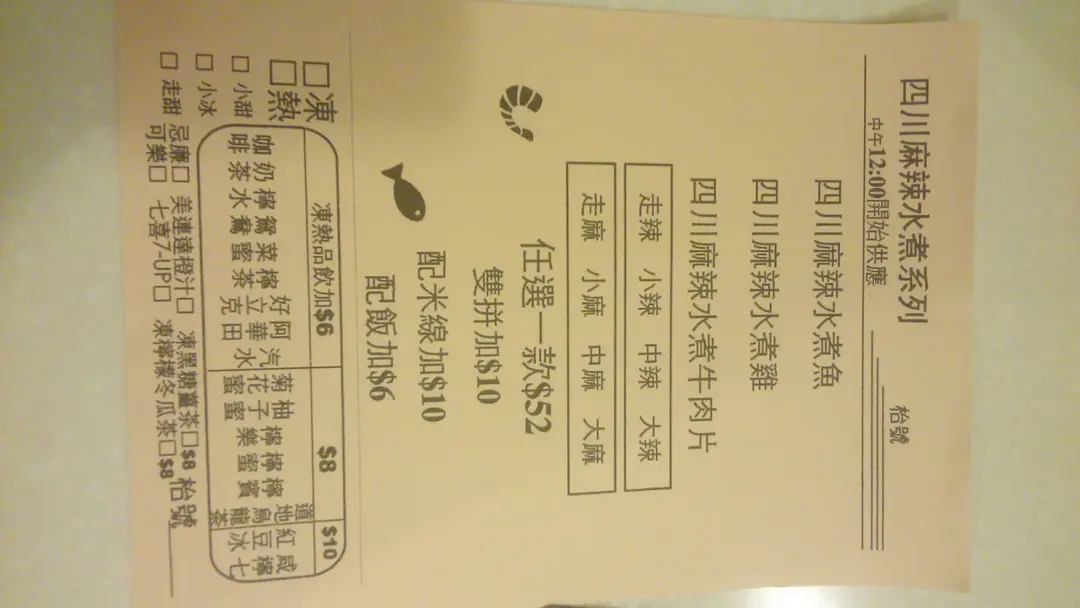 四川麻辣水煮系列
中午12:00開始供應
枱號
四川麻辣水煮魚
四川麻辣水煮雞
四川麻辣水煮牛肉片
走辣 小辣 中辣 大辣
走麻 小麻 中麻 大麻
任選一款$52
雙拼加$10
配米線加$10
配飯加$6
□凍
□熱
□ 小甜
□ 小冰
□ 走甜
凍熱品飲加$6
咖啡
奶茶
檸水
鴛鴦
菜蜜
檸茶
好立克
阿華田
汽水
$8
菊花蜜
柚子蜜
檸樂
檸蜜
檸賓
道地烏龍茶
$10
紅豆冰
咸檸七
忌廉□ 美連達橙汁□ 凍黑糖薑茶□$8 枱號
可樂□ 七喜7-UP□ 凍檸檬冬瓜茶□$8